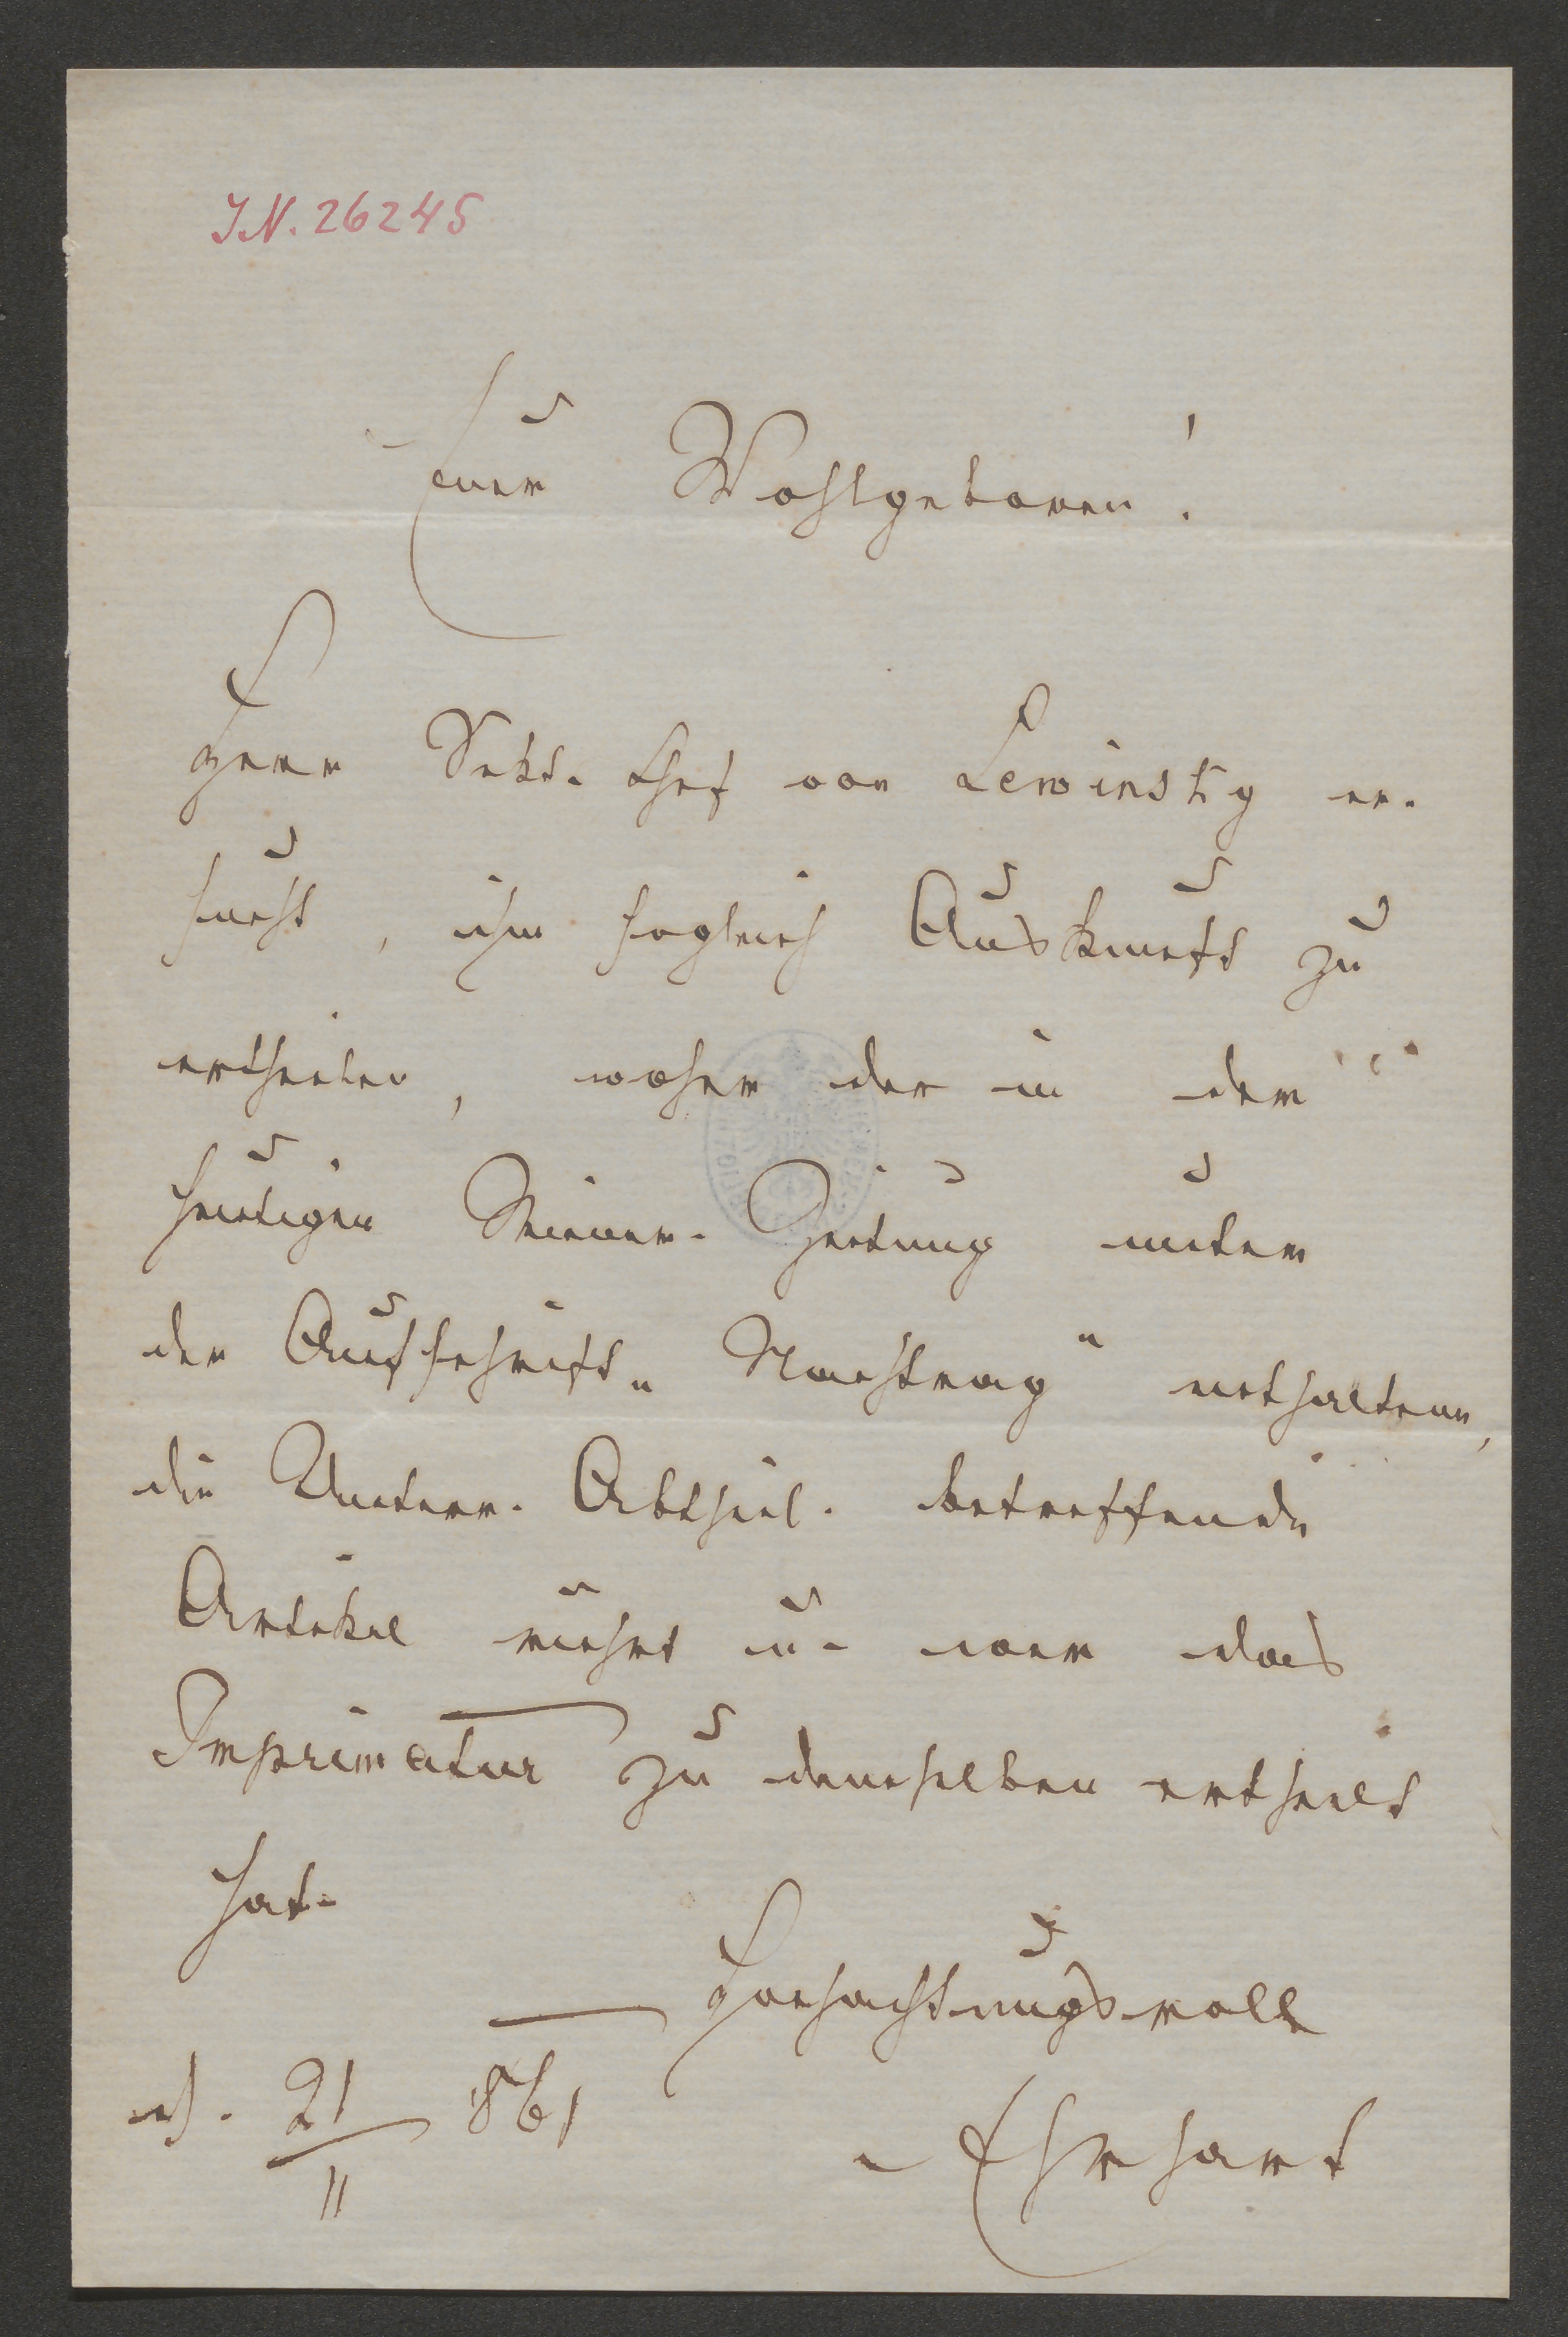 I.N. 26245
Euer Wohlgeboren!
Herr Sekt. Chef von Lewinsky er-
sucht, ihm sogleich Auskunft zu
ertheilen, woher der in der
heutigen Wiener-Zeitung unter
der Aufschrift „Nachtrag“ enthaltene,
die Unterr. Abtheil. betreffende
Artikel rührt u. wer das
Imprimatur zu demselben ertheilt
hat.
Hochachtungsvoll
21/11 861
Ehrhart